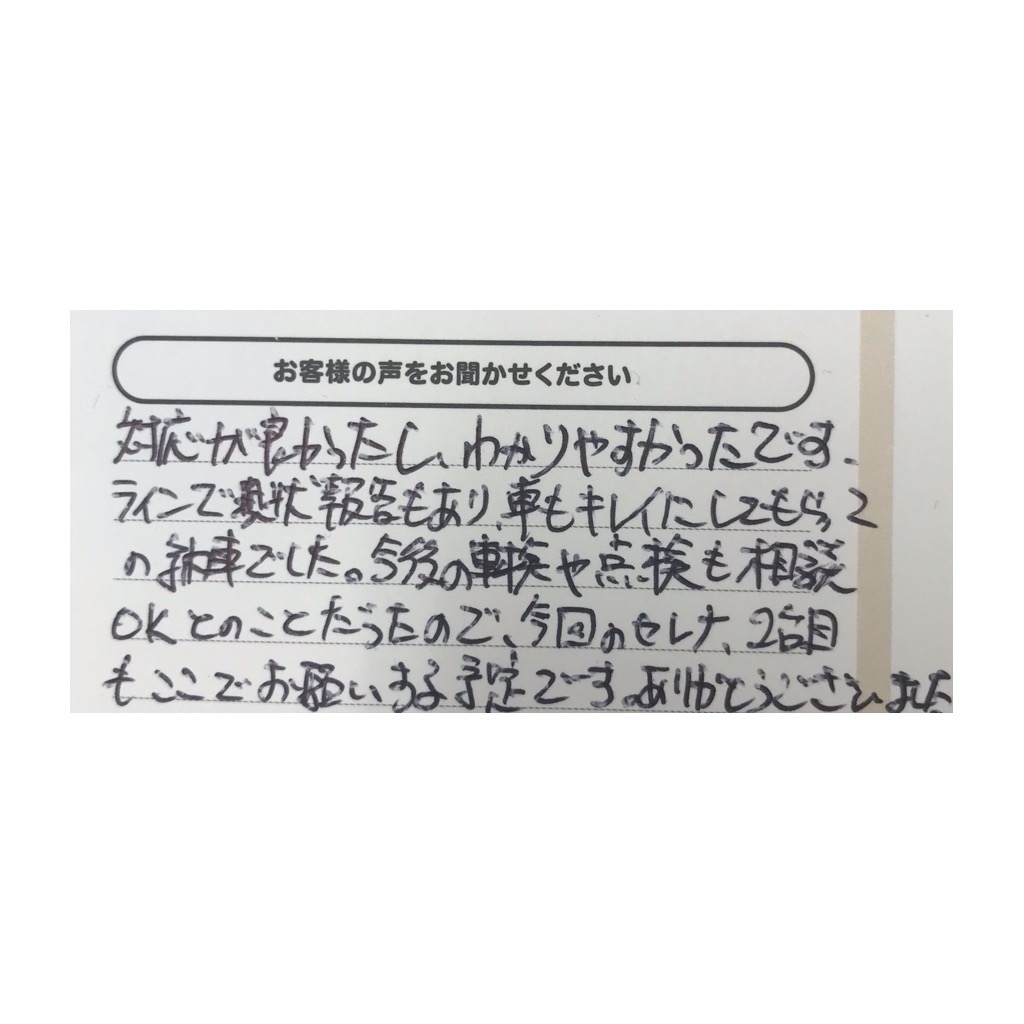 お客様の声をお聞かせください
対応が良かったし、わかりやすかったです。
ラインで現状報告もあり、車もキレイにしてもらって
の納車でした。今後の車検や点検も相談
OKとのことだったので、今回のセレナ、2台目
もここでお願いする予定です。ありがとうございました